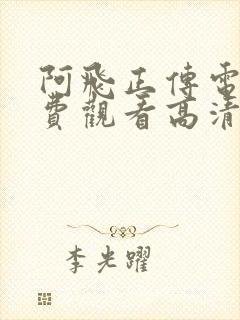 阿飛正傳電
費觀看高清
李光躍